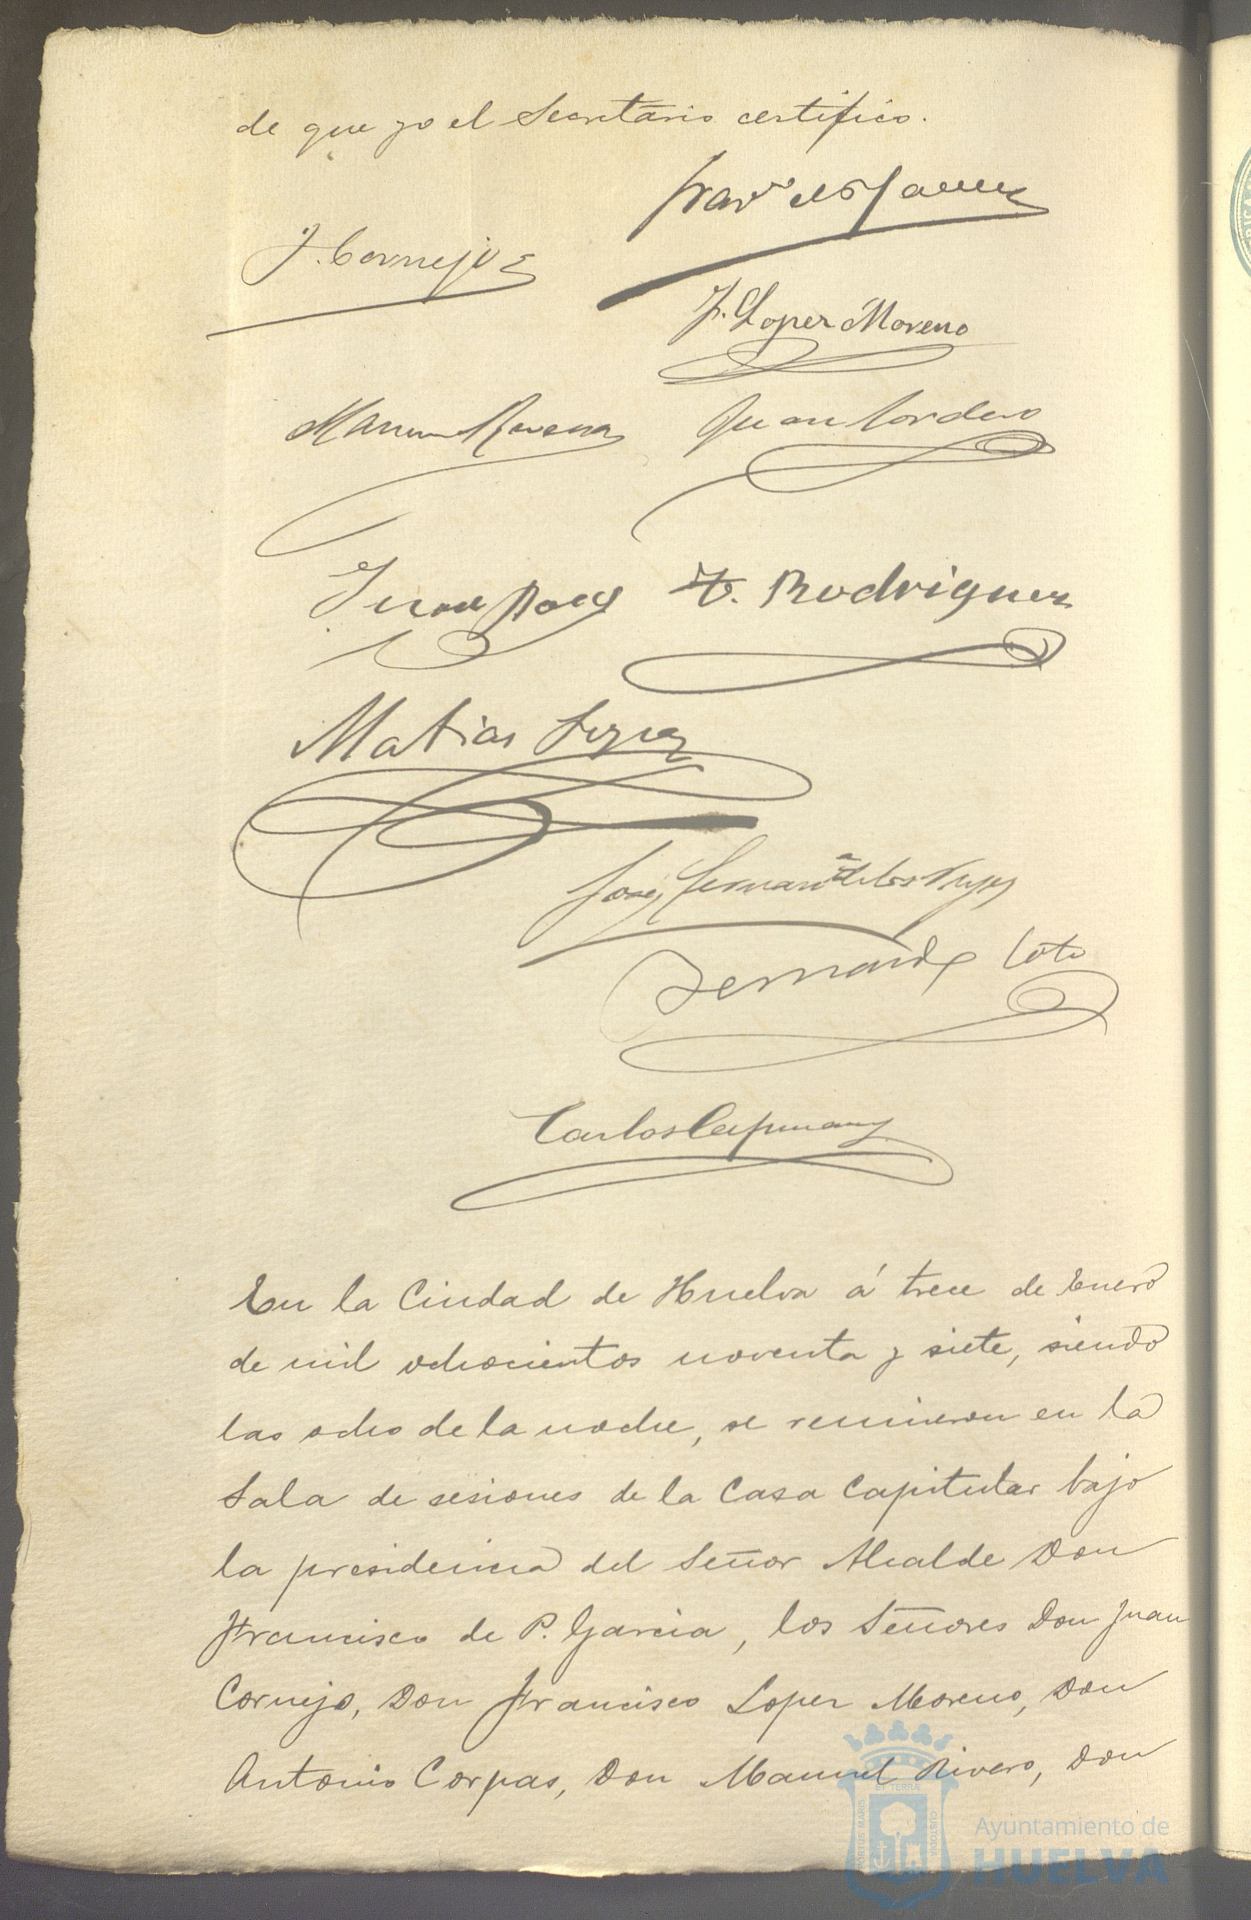 de que yo el Secretario certifico.
J. Cornejo
F. Lopez Moreno
Juan Cordero
F. Rodriguez
Matias Lopez
José Fernand de los Reyes
Bernardo Coto
Carlos Capmany
En la Ciudad de Huelva á trece de Enero
de mil ochocientos noventa y siete, siendo
las ocho de la noche, se reunieron en la
Sala de sesiones de la Casa Capitular bajo
la presidencia del Señor Alcalde Don
Francisco de P. Garcia, los Señores Don Juan
Cornejo, Don Francisco Lopez Moreno, Don
Antonio Corpas, Don Manuel Rivero, Don
Ayuntamiento de
HUELVA